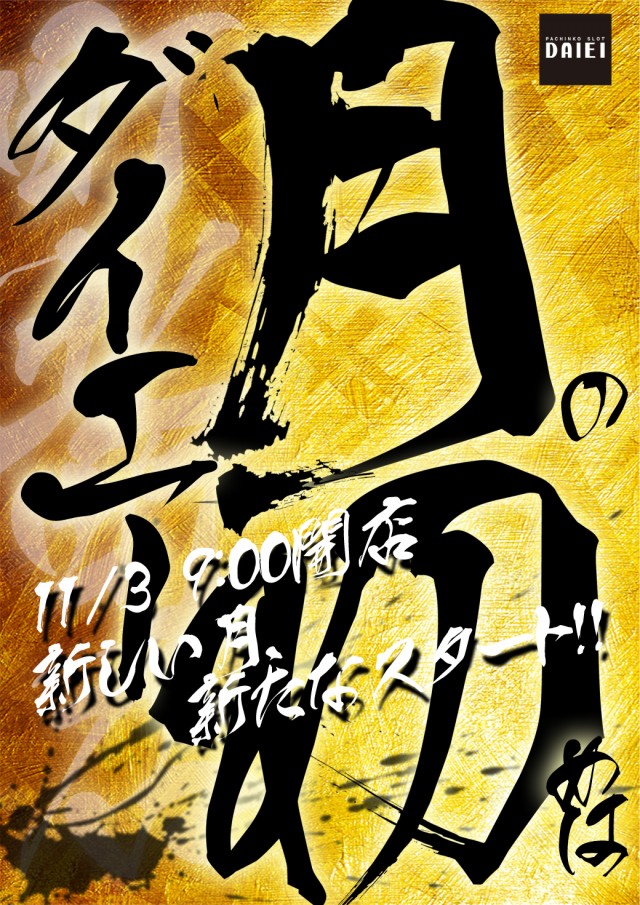 PACHINKO SLOT
DAIEI
月の
初めは
ダイエー
11/3 9:00開店
新しい月、
新たなスタート!!